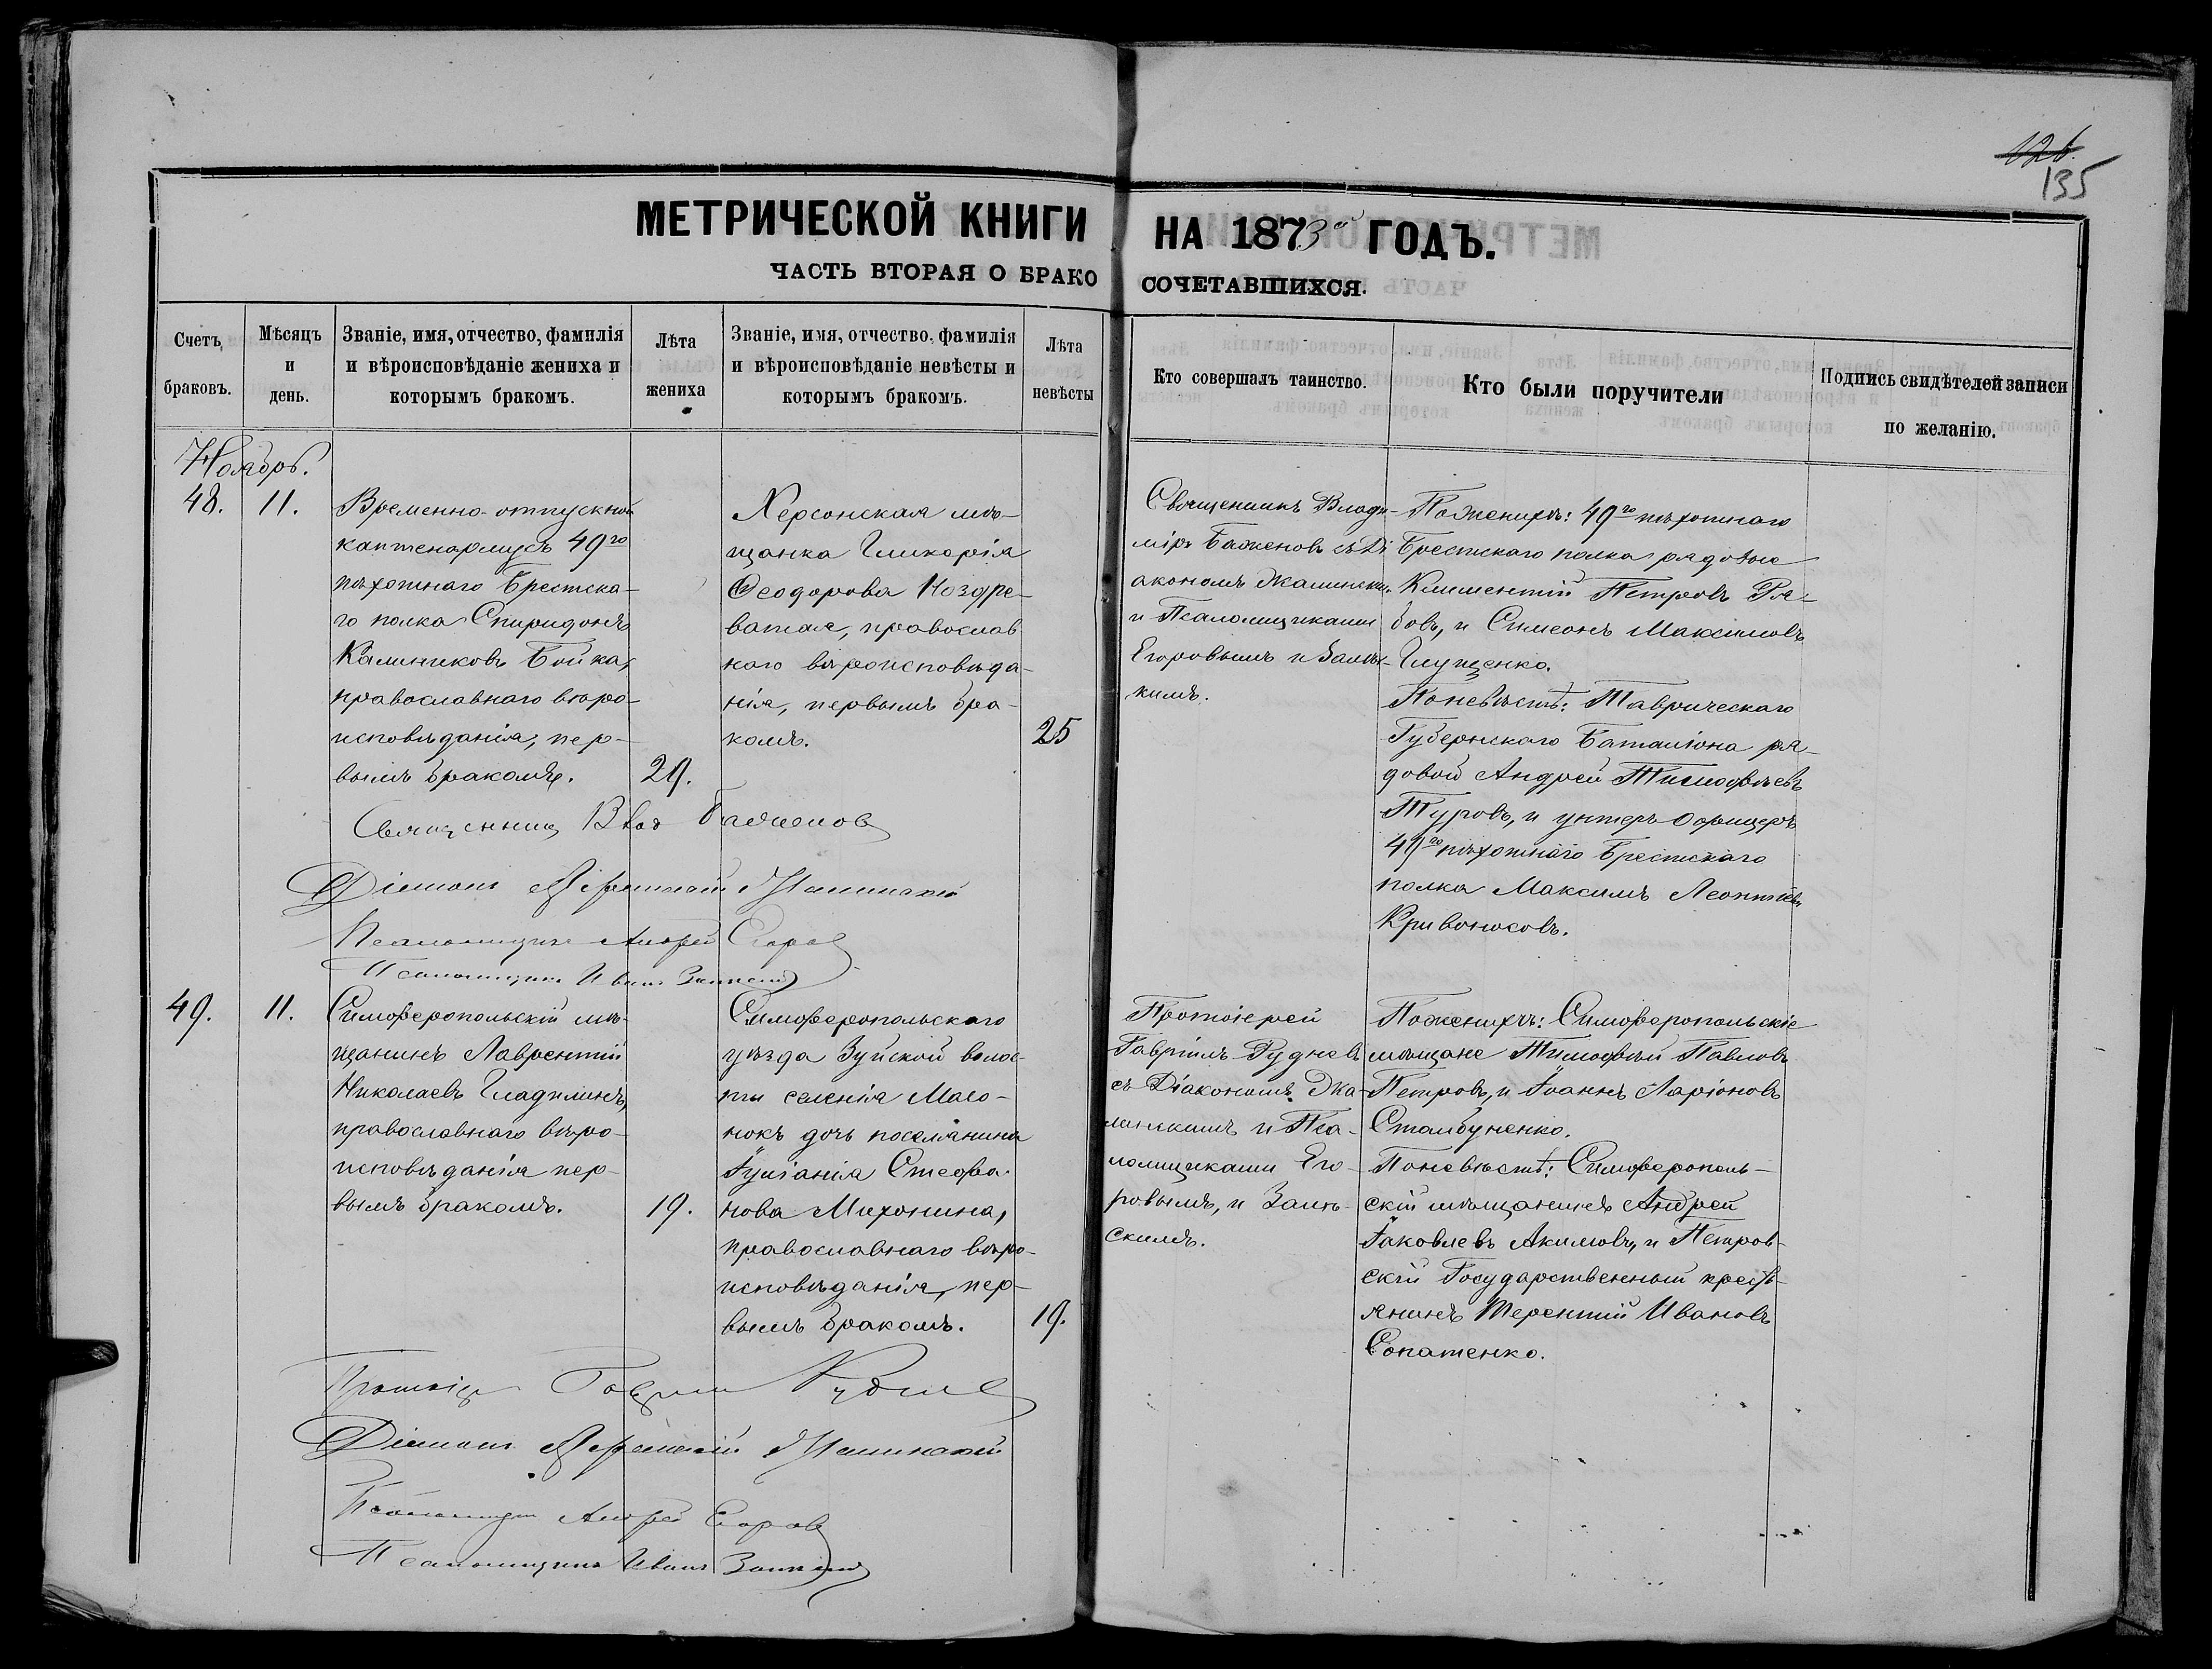 126.
135
МЕТРИЧЕСКОЙ КНИГИ НА 1873й ГОДЪ.
ЧАСТЬ ВТОРАЯ О БРАКОСОЧЕТАВШИХСЯ.
Счетъ браковъ.
Мѣсяцъ и день.
Званіе, имя, отчество, фамилія
и вѣроисповѣданіе жениха и
которымъ бракомъ.
Лѣта жениха
Званіе, имя, отчество, фамилія
и вѣроисповѣданіе невѣсты и
которымъ бракомъ.
Лѣта невѣсты
Кто совершалъ таинство.
Кто были поручители
Подпись свидѣтелей записи
по желанію.
Ноябрь.
48.
11.
Временно-отпускной
каптенармусъ 49го
пѣхотнаго Брестска-
го полка Спиридонъ
Калиниковъ Бойка,
православнаго вѣро-
исповѣданія, пер-
вымъ бракомъ.
29.
Херсонская мѣ-
щанка Гликерія
Ѳеодорова Ноздре-
ватая, православ
наго вѣроисповѣда-
нія, первымъ бра-
комъ.
25
Священникъ Влади-
міръ Баженовъ съ Ді
акономъ Жалински
и Псаломщиками
Егоровымъ и
кимъ.
Поженихѣ: 49го пѣхотнаго
Брестскаго полка рядовые
Климентій Петровъ Ря-
бовъ, и Симеонъ Максимовъ
Глущенко.
Поневѣстѣ: Таврическаго
Губернскаго Баталіона ря-
довой Андрей Тимофѣевъ
Туровъ, и унтеръ офицеръ
49го пѣхотнаго Брестскаго
полка Максимъ Леонтіевъ
Кривоносовъ.
Священникъ Влад Баженовъ
Діаконъ Жалинскій
Псаломщикъ Андрей Егоровъ
Псаломщикъ Иванъ
49.
11.
Симферопольскій мѣ-
щанинъ Лаврентій
Николаевъ Гладилинъ,
православнаго вѣро-
исповѣданія пер-
вымъ бракомъ.
19.
Симферопольскаго
уѣзда Зуйской волос-
ти селенія Мазо-
нокъ дочь поселянина
Іуліанія Стефа-
нова Михонина,
православнаго вѣро-
исповѣданія, пер-
вымъ бракомъ.
19.
Протоіерей
Гавріилъ Рудневъ
съ Діакономъ Жа-
линскимъ и Пса-
ломщиками Его-
ровымъ, и
скимъ.
Поженихѣ: Симферопольскіе
мѣщане Тимофѣй Павловъ
Петровъ, и Іоаннъ Ларіоновъ
Стамбуненко.
Поневѣстѣ: Симферополь-
скій мѣщанинъ Андрей
Іаковлевъ Акимовъ, и Петров-
скій Государственный кресть-
янинъ Терентій Ивановъ
Сопатенко.
Протоіер Гавріилъ Рудневъ
Діаконъ Жалинскій
Псаломщикъ Андрей Егоровъ
Псаломщикъ Иванъ